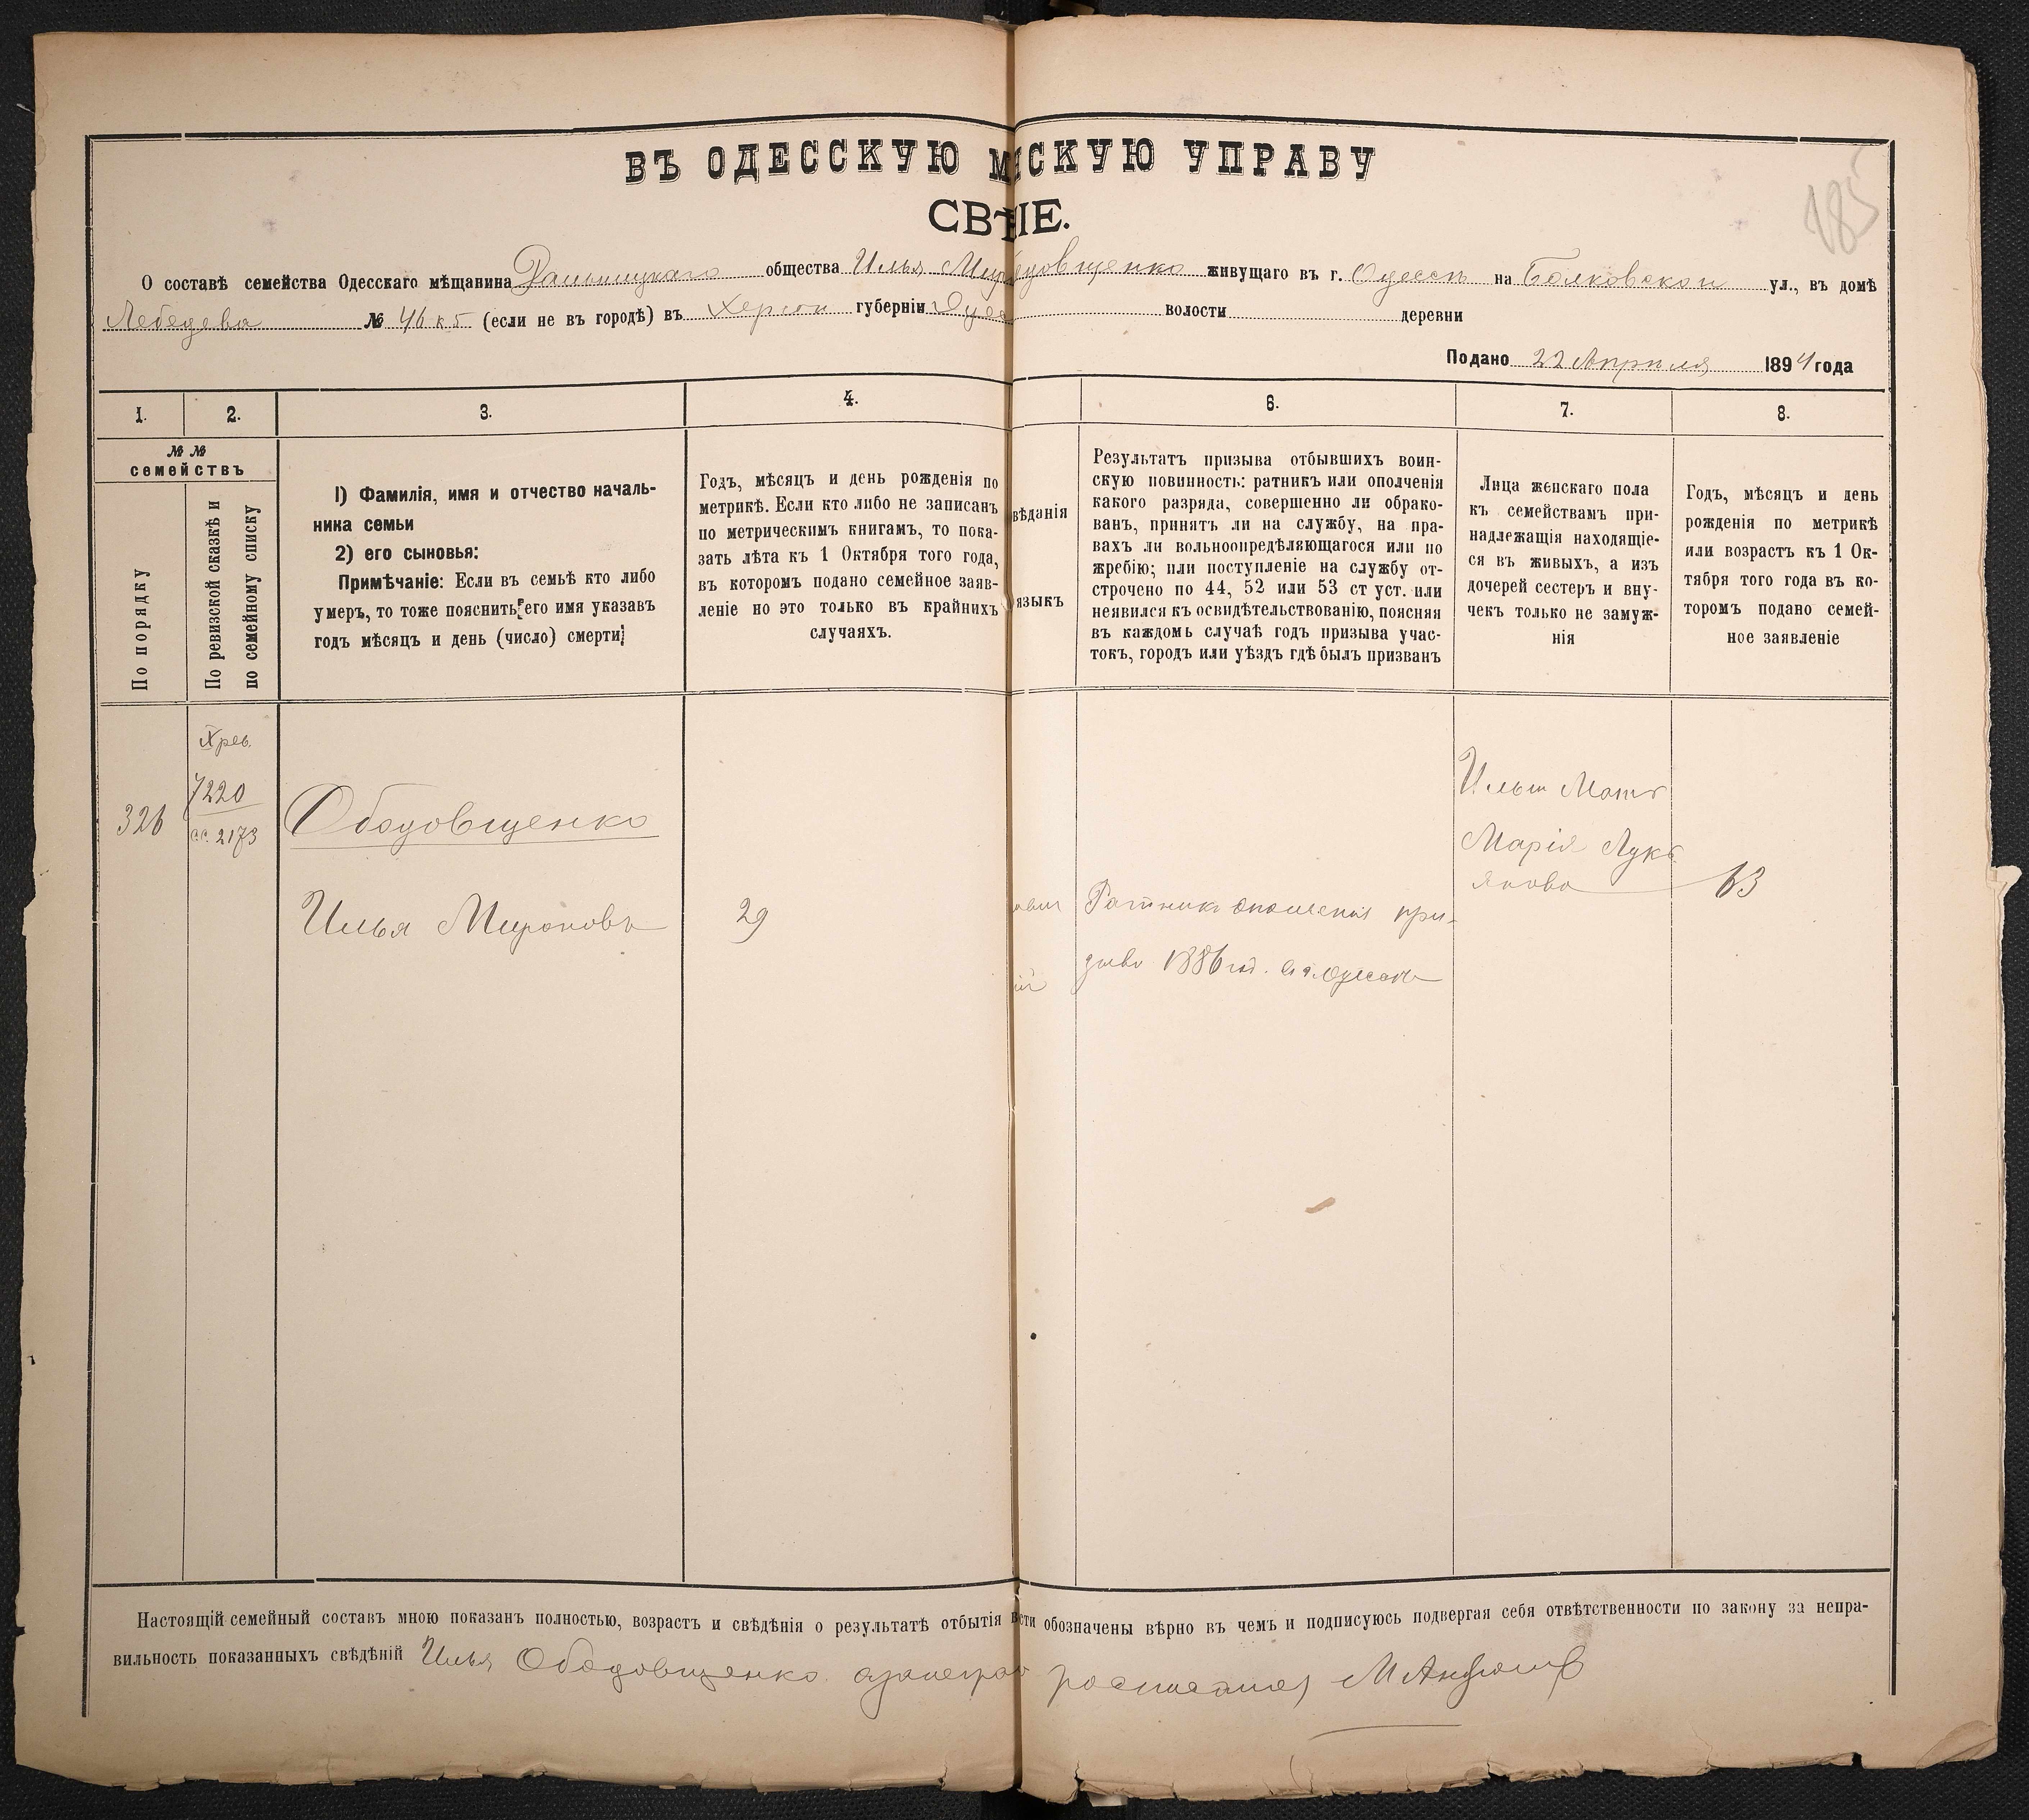 185
ВЪ ОДЕССКУЮ М СКУЮ УПРАВУ
СВѢ ІЕ.
О составѣ семейства Одесскаго мѣщанина общества Илья Ми довщенко живущаго въ г. Одессѣ на ул., въ домѣ
Лебедева № 46 к 5 (если не въ городѣ) въ Херсон губерніи Одес волости деревни
Подано 22 Апрѣля 1894 года
1. 2. 3. 4. 6. 7. 8.
№ №
семействъ
По порядку
По ревизской сказкѣ и
по семейному списку
1) Фамилія, имя и отчество началь-
ника семьи
2) его сыновья:
Примѣчаніе: Если въ семьѣ кто либо
умеръ, то тоже пояснить его имя указавъ
годъ мѣсяцъ и день (число) смерти;
Годъ, мѣсяцъ и день рожденія по
метрикѣ. Если кто либо не записанъ
по метрическимъ книгамъ, то пока-
зать лѣта къ 1 Октября того года,
въ которомъ подано семейное заяв-
леніе но это только въ крайнихъ
случаяхъ.
вѣданія
языкъ
Результатъ призыва отбывшихъ воин-
скую повинность: ратникъ или ополченія
какого разряда, совершенно ли обрако-
ванъ, принятъ ли на службу, на пра-
вахъ ли вольноопредѣляющагося или по
жребію; или поступленіе на службу от-
строчено по 44, 52 или 53 ст уст. или
неявился къ освидѣтельствованію, поясняя
въ каждомъ случаѣ годъ призыва учас-
токъ, городъ или уѣздъ гдѣ былъ призванъ
Лица женскаго пола
къ семействамъ при-
надлежащія находящіе-
ся въ живыхъ, а изъ
дочерей сестеръ и вну-
чекъ только не замуж-
нія
Годъ, мѣсяцъ и день
рожденія по метрикѣ
или возрастъ къ 1 Ок-
тября того года въ ко-
торомъ подано семей-
ное заявленіе
X рев.
7220
326 с.с. 2173
Ободовщенко
Илья Мироновъ 29
Ратникъ ополченія при-
зыва 1886 год. въ г. Одессѣ
Ильи Мать
Марія Лукь
янова 63
Настоящій семейный составъ мною показанъ полностью, возрастъ и свѣдѣнія о результатѣ отбытія сти обозначены вѣрно въ чемъ и подписуюсь подвергая себя отвѣтственности по закону за непра-
вильность показанныхъ свѣдѣній Илья Ободовщенко